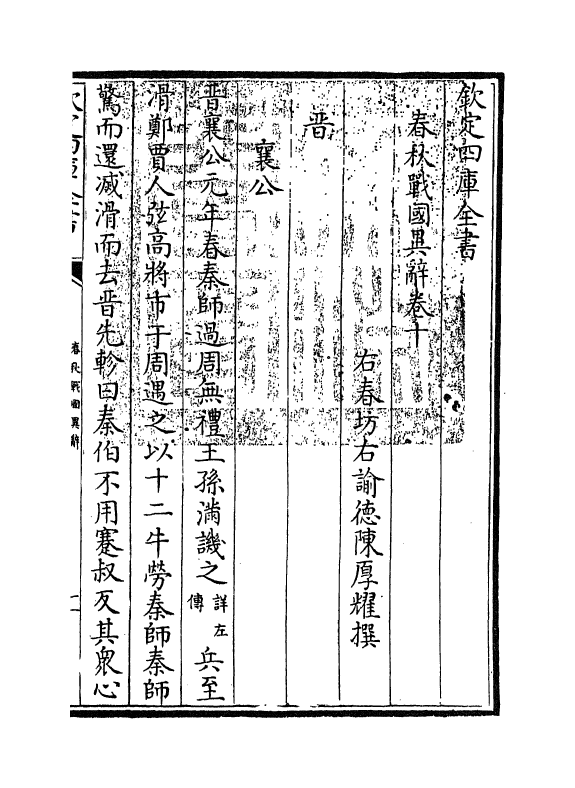 欽定四庫全書
春秋戰國異辭卷十
右春坊右諭德陳厚耀撰
晉
襄公
晉襄公元年春秦師過周無禮王孫滿譏之詳左傳兵至
滑鄭賈人弦高將市于周遇之以十二牛勞秦師秦師
驚而還滅滑而去晉先軫曰秦伯不用蹇叔反其衆心
春秋戰國異辭